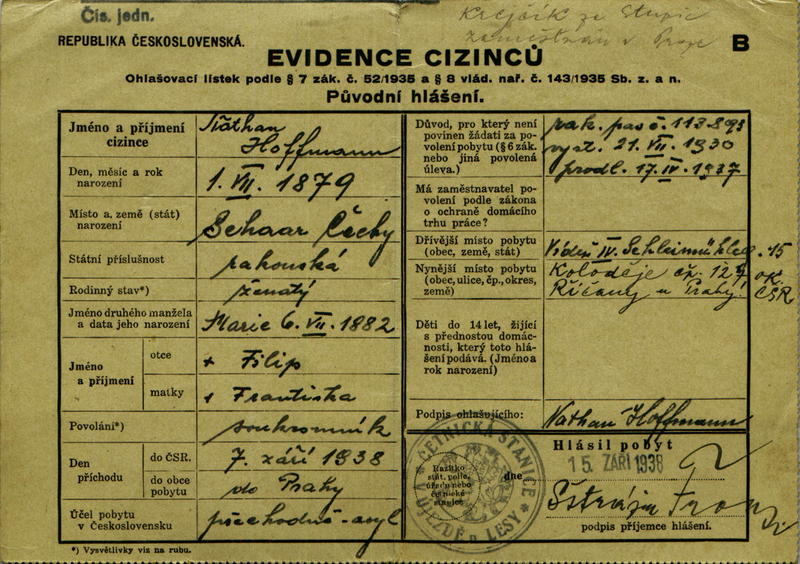 Čís. jedn.
Krejčík ze Stupic
zaměstnán v Praze
REPUBLIKA ČESKOSLOVENSKÁ.
B
EVIDENCE CIZINCŮ
Ohlašovací lístek podle § 7 zák. č. 52/1935 a § 8 vlád. nař. č. 143/1935 Sb. z. a n.
Původní hlášení.
Jméno a příjmení cizince
Nathan Hoffmann
Den, měsíc a rok narození
1. VII. 1879
Místo a, země (stát) narození
Schaar Čechy
Státní příslušnost
rakouská
Rodinný stav*)
ženatý
Jméno druhého manžela a data jeho narození
Marie 6. VII. 1882
Jméno a příjmení
otce
+ Filip
matky
+ Františka
Povolání*)
soukromník
Den příchodu
do ČSR.
7. září 1938
do obce pobytu
do Prahy
Účel pobytu v Československu
přechodně-asyl
*) Vysvětlivky viz na rubu.
Důvod, pro který není povinen žádati za povolení pobytu (§ 6 zák. nebo jiná povolená úleva.)
rak. pas č. 113.893
vyst. 21. VII. 1930
prodl. 17. IV. 1937
Má zaměstnavatel povolení podle zákona o ochraně domácího trhu práce?
Dřívější místo pobytu (obec, země, stát)
Vídeň IV. 15
Nynější místo pobytu (obec, ulice, čp., okres, země)
Koloděje čp. 127 ok.
Říčany u Prahy. ČSR
Děti do 14 let, žijící s přednostou domácnosti, který toto hlášení podává. (Jméno a rok narození)
Podpis ohlašujícího:
Nathan Hoffmann
Hlásil pobyt
dne
15. ZÁŘÍ 1938
Razítko stát. polic. úřadu nebo četnické stanice
ČETNICKÁ STANICE
V ÚJEZDĚ n. LESY
podpis příjemce hlášení.